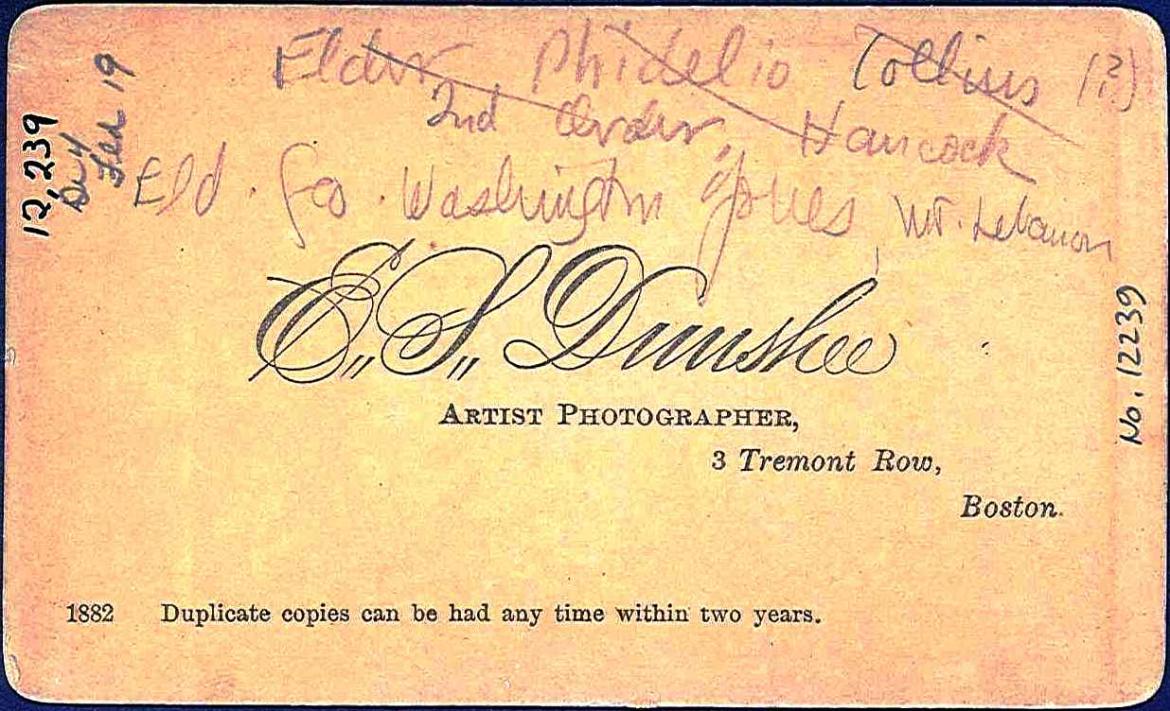 Elder Phidelio Collins (?)
2nd Order, Hancock
Eld. Geo. Washington Jones, Mt. Lebanon
12,239
Feb 19
E,, S,, Dunshee
ARTIST PHOTOGRAPHER,
3 Tremont Row,
Boston.
No. 12239
1882 Duplicate copies can be had any time within two years.